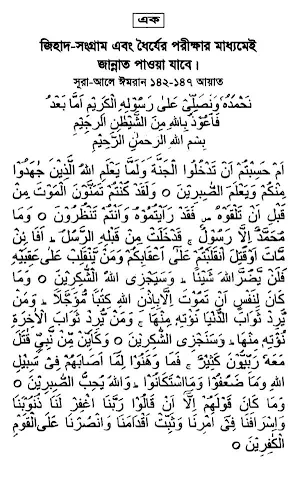 এক
জিহাদ-সংগ্রাম এবং ধৈর্যের পরীক্ষার মাধ্যমেই
জান্নাত পাওয়া যাবে।
সূরা-আলে ঈমরান ১৪২-১৪৭ আয়াত
نَحْمَدُهٗ وَنُصَلِّىْ عَلٰى رَسُوْلِهِ الْكَرِيْمِ اَمَّا بَعْدُ
فَاَعُوْذُ بِاللّٰهِ مِنَ الشَّيْطٰنِ الرَّجِيْمِ
بِسْمِ اللّٰهِ الرَّحْمٰنِ الرَّحِيْمِ
اَمْ حَسِبْتُمْ اَنْ تَدْخُلُوا الْجَنَّةَ وَلَمَّا يَعْلَمِ اللّٰهُ الَّذِيْنَ جٰهَدُوْا
مِنْكُمْ وَيَعْلَمَ الصّٰبِرِيْنَ ○ وَلَقَدْ كُنْتُمْ تَمَنَّوْنَ الْمَوْتَ مِنْ
قَبْلِ اَنْ تَلْقَوْهُ ص فَقَدْ رَاَيْتُمُوْهُ وَاَنْتُمْ تَنْظُرُوْنَ ○ وَمَا
مُحَمَّدٌ اِلَّا رَسُوْلٌ ج قَدْخَلَتْ مِنْ قَبْلِهِ الرُّسُلُ ط اَفَا۟ئِنْ
مَّاتَ اَوْقُتِلَ انْقَلَبْتُمْ عَلٰى اَعْقَابِكُمْ وَمَنْ يَّنْقَلِبْ عَلٰى عَقِبَيْهِ
فَلَنْ يَّضُرَّ اللّٰهَ شَيْئًا ط وَسَيَجْزِى اللّٰهُ الشّٰكِرِيْنَ ○ وَمَا
كَانَ لِنَفْسٍ اَنْ تَمُوْتَ اِلَّابِاِذْنِ اللّٰهِ كِتٰبًا مُّؤَجَّلًا ط وَمَنْ
يُّرِدْ ثَوَابَ الدُّنْيَا نُؤْتِهٖ مِنْهَا ج وَمَنْ يُّرِدْ ثَوَابَ الْاٰخِرَةِ
نُؤْتِهٖ مِنْهَا ط وَسَنَجْزِى الشّٰكِرِيْنَ ○ وَكَاَيِّنْ مِّنْ نَّبِىٍّ قٰتَلَ
مَعَهٗ رِبِّيُّوْنَ كَثِيْرٌ ج فَمَا وَهَنُوْا لِمَا اَصَابَهُمْ فِىْ سَبِيْلِ
اللّٰهِ وَمَا ضَعُفُوْا وَمَااسْتَكَانُوْا ط وَاللّٰهُ يُحِبُّ الصّٰبِرِيْنَ ○
وَمَا كَانَ قَوْلَهُمْ اِلَّا اَنْ قَالُوْا رَبَّنَا اغْفِرْ لَنَا ذُنُوْبَنَا
وَاِسْرَافَنَا فِىْ اَمْرِنَا وَثَبِّتْ اَقْدَامَنَا وَانْصُرْنَا عَلَى الْقَوْمِ
الْكٰفِرِيْنَ ○